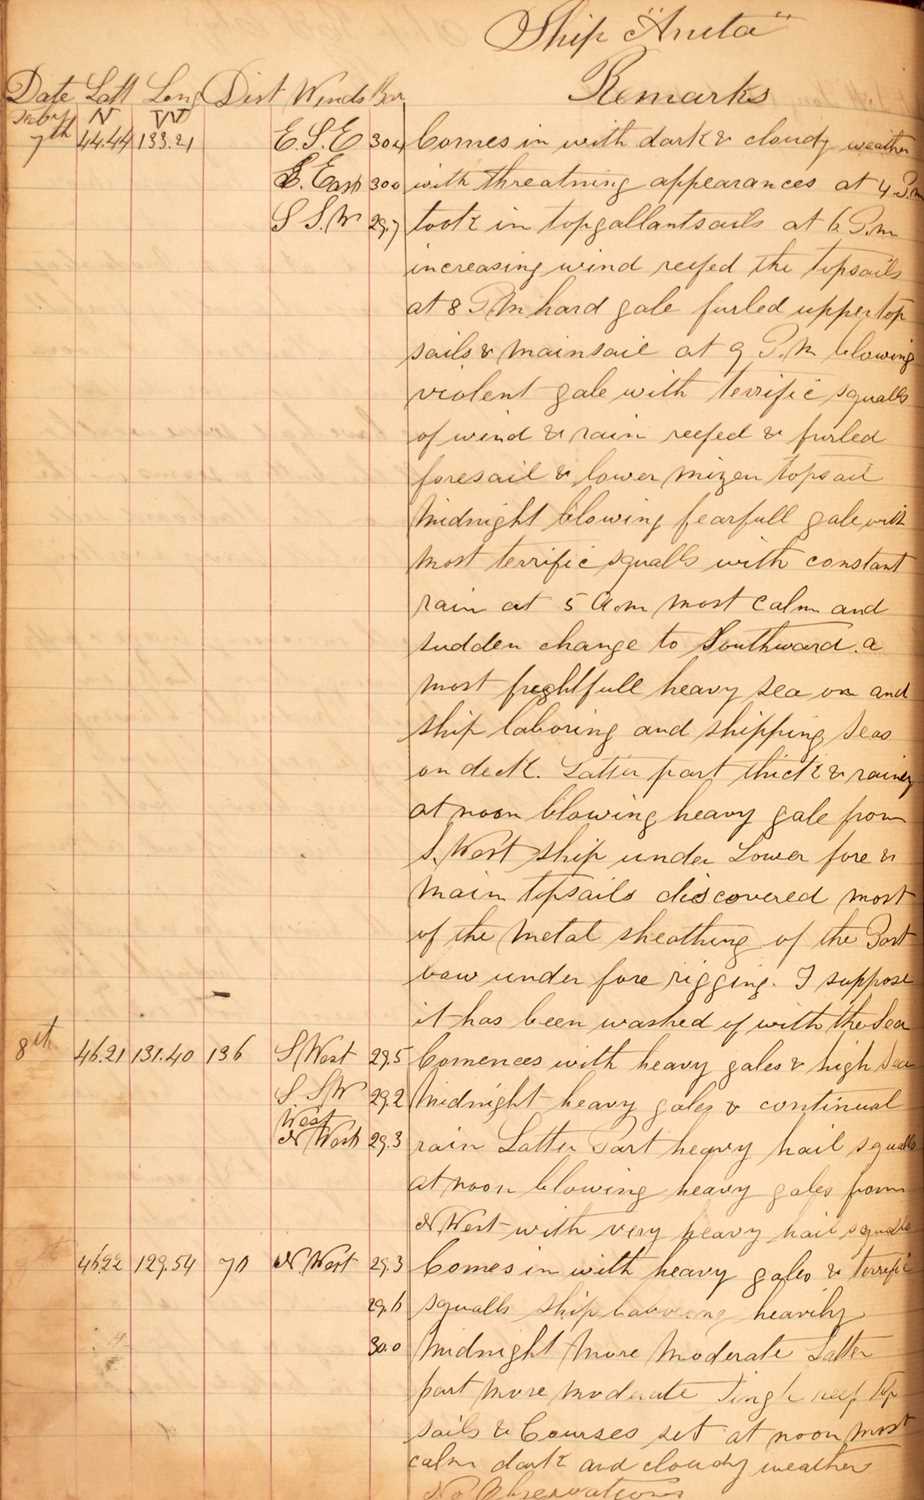 Ship "Anita"
Date Latt Long Dist Winds Bar Remarks
N W
7th 44.44 133.21 E.S.E 30.4 Comes in with dark & cloudy weather
S. East 30.0 with threatning appearances at 4 P.m
S S.W 29.7 took in topgallantsails at 6 P.m
increasing wind reefed the topsails
at 8 P M hard gale furled upper top
sails & mainsail at 9 P.M blowing
violent gale with terrific squalls
of wind & rain reefed & furled
foresail & lower mizen topsail
Midnight blowing fearfull gale with
most terrific squalls with constant
rain at 5 a.m most calm and
sudden change to Southward. a
most frightfull heavy sea on and
ship laboring and shipping seas
on deck. Latter part thick & rainey
at noon blowing heavy gale from
S. West ship under Lower fore &
main topsails discovered most
of the metal sheathing of the Port
bow under fore rigging. I suppose
it has been washed of with the Sea
8th 46.21 131.40 136 S West 29.5 Comences with heavy gales & high Sea
S. S W 29.2 Midnight heavy gales & continual
West
N West 29.3 rain Latter Part heavy hail squalls
at noon blowing heavy gales from
N West with very heavy hail squalls
9th 46.22 129.54 70 N West 29.3 Comes in with heavy gales & terrific
29.6 squalls ship laboring heavily
30.0 Midnight more moderate Latter
part more moderate Single reef top
sails & Courses set at noon most
calm dark and cloudy weather
No Observations